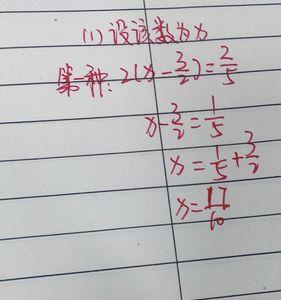 (1) 设该数为x
第一种: 2(x - 3/2) = 2/5
x - 3/2 = 1/5
x = 1/5 + 3/2
x = 17/10